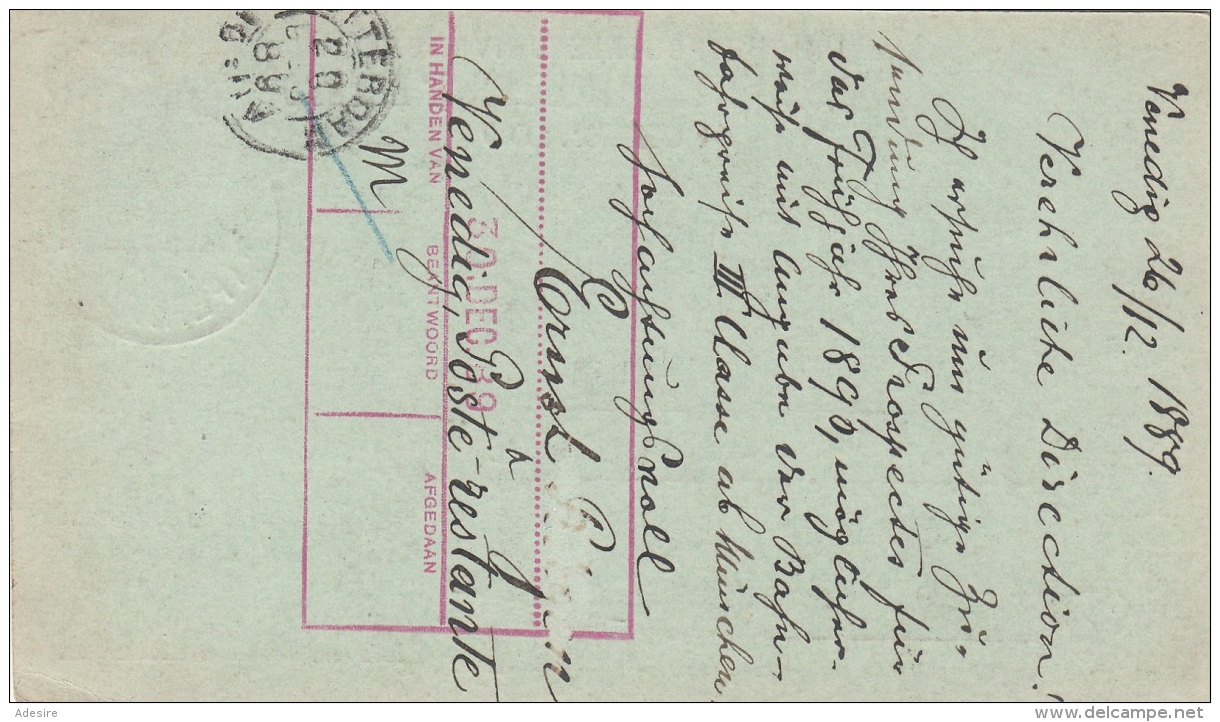 Venedig 26/12. 1889.
Verehrliche Direction!
Ich ersuche um gütige Zu-
sendung Ihres Prospectes für
das Frühjahr 1890, möglicher-
weise mit Angabe der Bahn-
fahrpreise III. Classe ab München.
Hochachtungsvoll
Ernst
Venedig, Poste-restante
30.DEC 89
IN HANDEN VAN
BEANTWOORD
AFGEDAAN
M
Adesire
www.delcampe.net